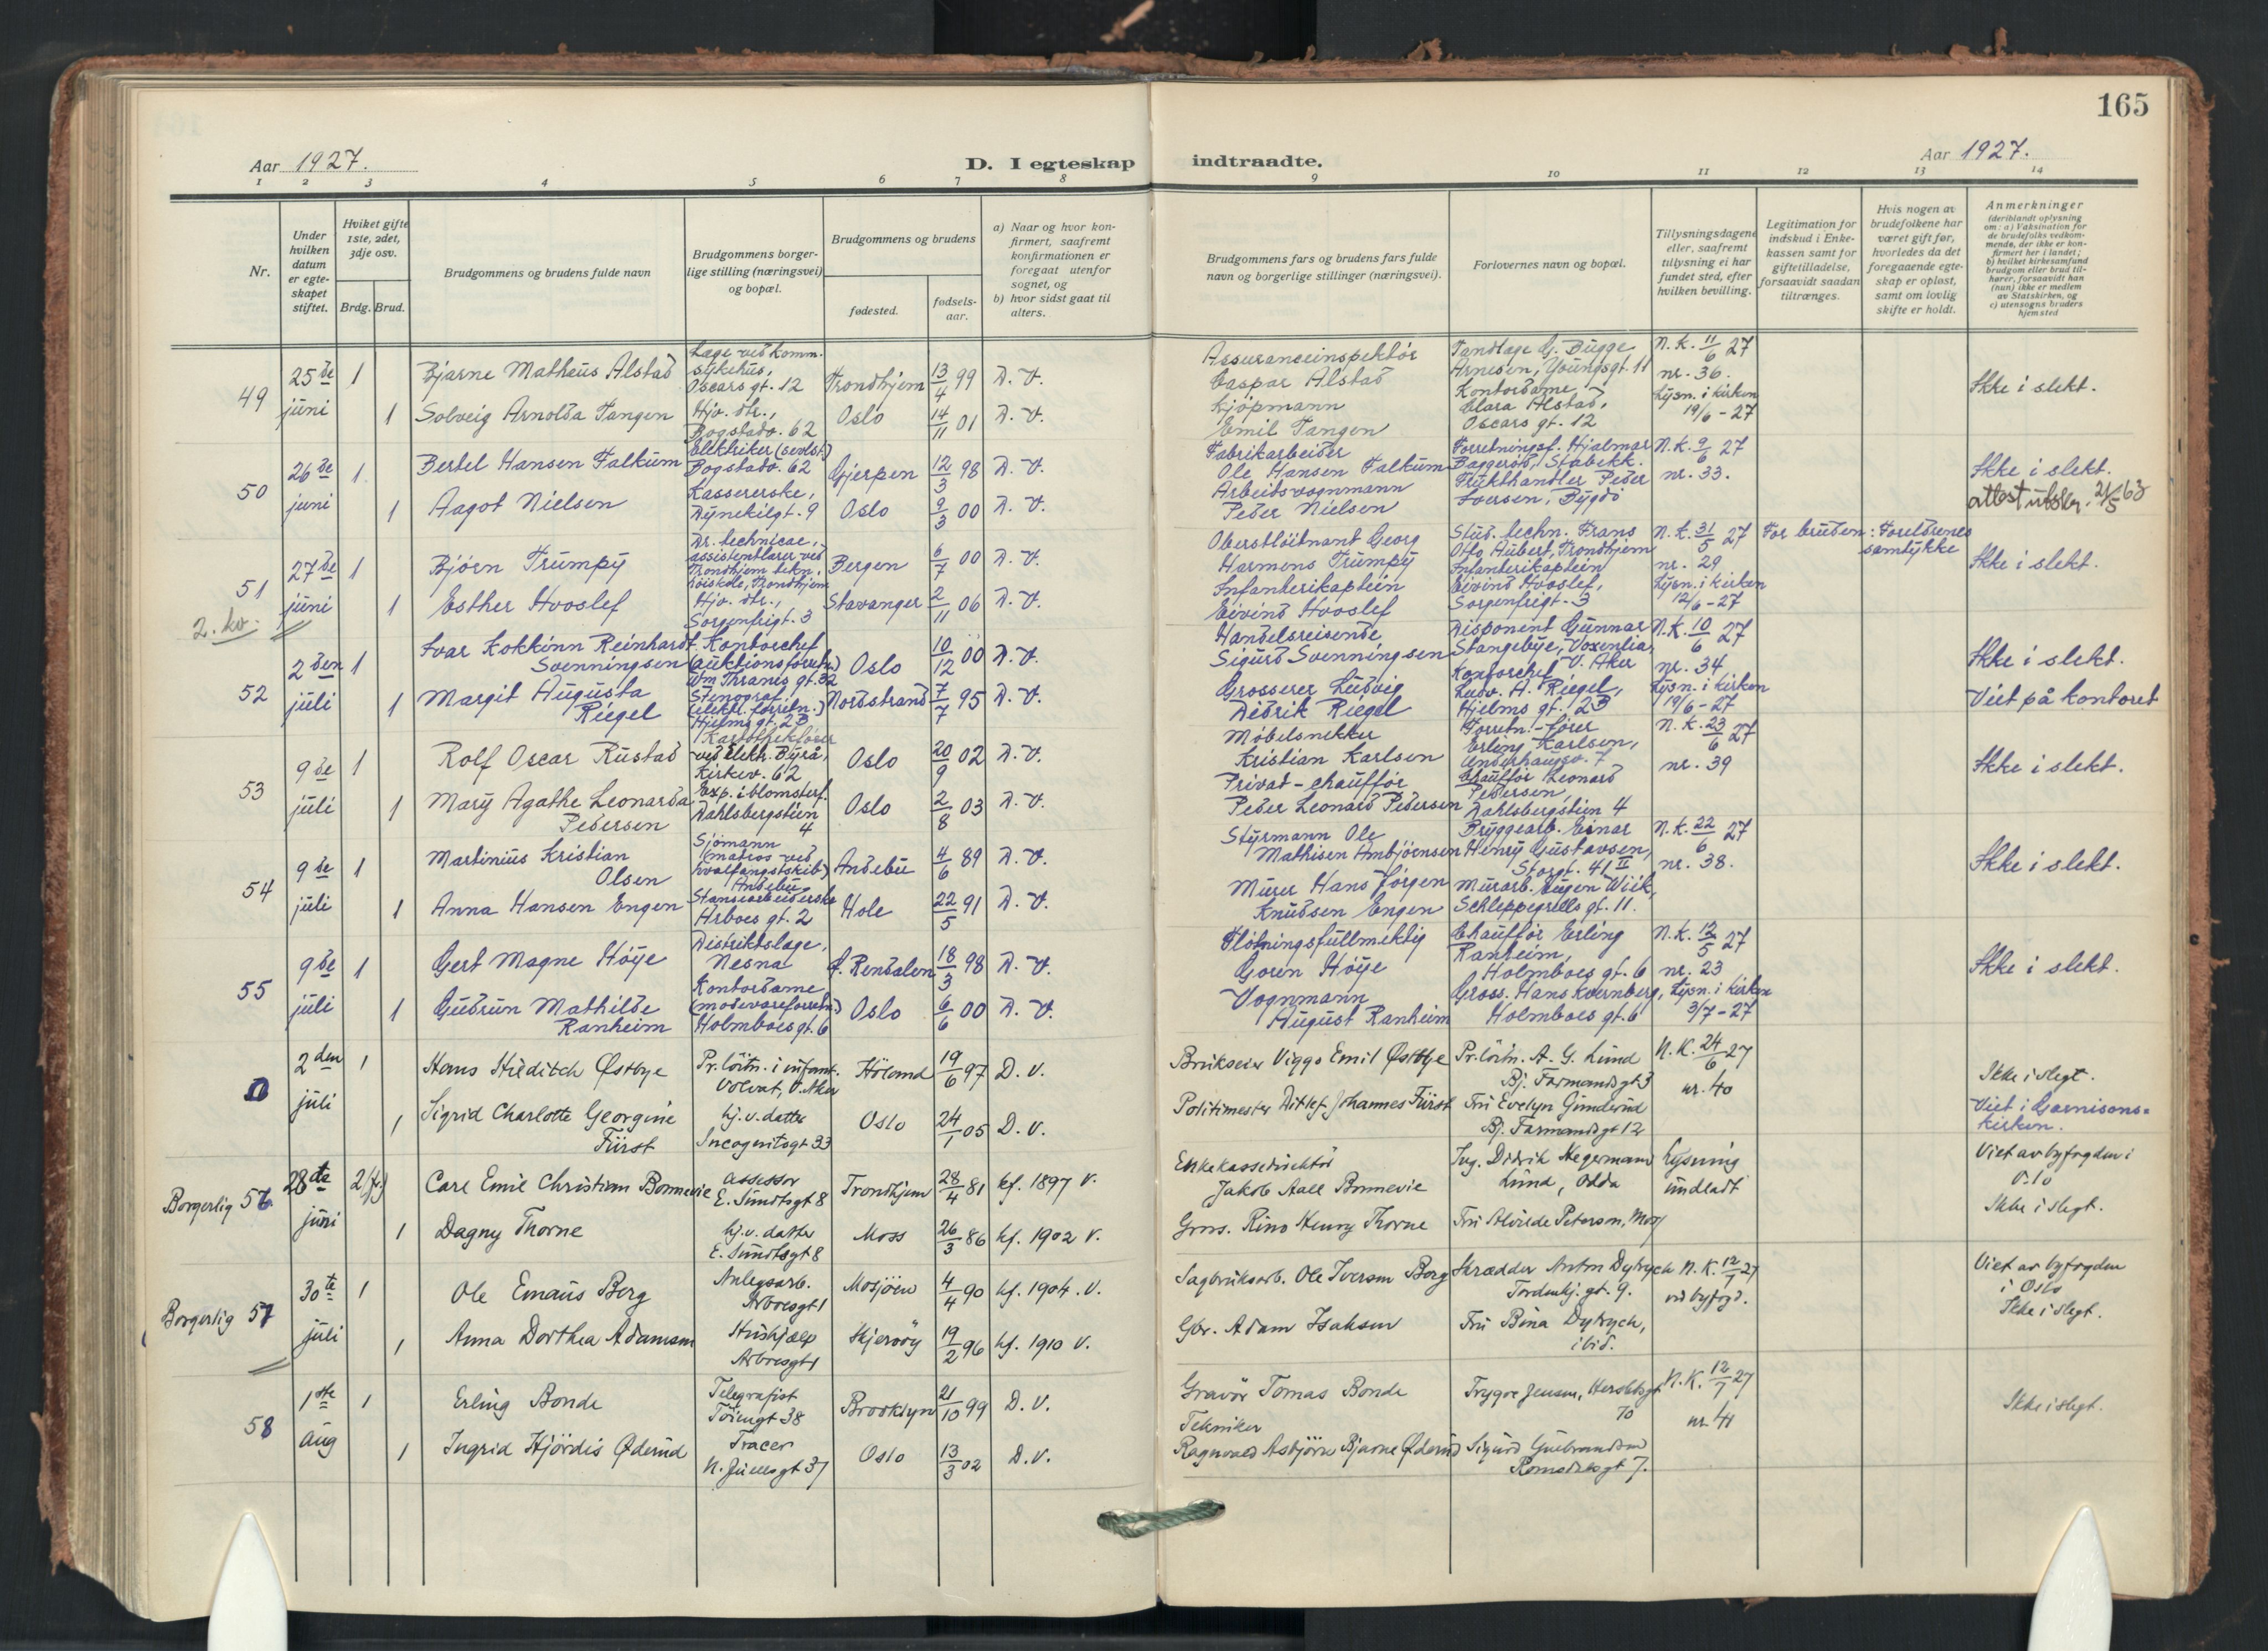 165
Aar 1927.
D. I egteskap indtraadte.
Aar 1927.
1 2 3 4 5 6 7 8 9 10 11 12 13 14
Nr.
Under hvilken datum er egteskapet stiftet.
Hviket gifte 1ste, 2det, 3dje osv.
Brdg. Brud.
Brudgommens og brudens fulde navn
Brudgommens borgerlige stilling (næringsvei) og bopæl.
Brudgommens og brudens
fødested.
fødselsaar.
a) Naar og hvor konfirmert, saafremt konfirmationen er foregaat utenfor sognet, og
b) hvor sidst gaat til alters.
Brudgommens fars og brudens fars fulde navn og borgerlige stillinger (næringsvei).
Forlovernes navn og bopæl.
Tillysningsdagene eller, saafremt tillysning ei har fundet sted, efter hvilken bevilling.
Legitimation for indskud i Enkekassen samt for giftetilladelse, forsaavidt saadan tiltrænges.
Hvis nogen av brudefolkene har været gift før, hvorledes da det foregaaende egteskap er opløst, samt om lovlig skifte er holdt.
Anmerkninger
(deriblandt oplysning om: a) Vaksination for de brudefolks vedkommende, der ikke er konfirmert her i landet; b) hvilket kirkesamfund brudgom eller brud tilhører, forsaavidt han (hun) ikke er medlem av Statskirken, og c) utensogns bruders hjemsted
49
25de juni
1 Bjarne Matheus Alstad
Læge ved komm. sykehus, Oscars gt. 12
Trondhjem 13/4 99 D. V.
Assuranceinspektør Caspar Alstad
Tandlæge G. Bugge Arnesen, Youngsgt. 11
N. K. 11/6 27 nr. 36.
Ikke i slekt.
1 Solveig Arnolda Tangen
Hjv. dtr., Bogstadv. 62
Oslo 14/11 01 D. V.
Kjøpmann Emil Tangen
Kontordame Clara Alstad, Oscars gt. 12
Lysn. i kirken 19/6-27
50
26de juni
1 Bertel Hansen Falkum
Elektriker (selvst.) Bogstadv. 62
Gjerpen 12/3 98 D. V.
Fabrikarbeider Ole Hansen Falkum
Forretningsf. Hjalmar Baggerød, Stabekk.
N. K. 9/6 27 nr. 33.
Ikke i slekt.
attest utskr. 21/5 63
1 Aagot Nielsen
Kassererske, Dynekilgt. 9
Oslo 9/3 00 D. V.
Arbeidsvognmann Peder Nielsen
Frukthandler Peder Iversen, Bygdö
51
27de juni
1 Bjørn Trumpy
Dr. technicae, assistentlærer ved Trondhjem tekn. høiskole, Trondhjem
Bergen 6/7 00 D. V.
Oberstløitnant Georg Harmens Trumpy
Stud. techn. Frans Otto Aubert, Trondhjem
N. K. 31/5 27 nr. 29
For bruden: Foreldrenes samtykke
Ikke i slekt.
1 Esther Hvoslef
Hjv. dtr., Sorgenfrigt. 3
Stavanger 2/11 06 D. V.
Infanterikaptein Eivind Hvoslef
Infanterikaptein Eivind Hvoslef, Sorgenfrigt. 3
Lysn. i kirken 12/6-27
2. kv.
52
2den juli
1 Ivar Kokkinn Reinhardt Svenningsen
Kontorchef (auktionsforretn.) Wm Thranes gt. 32
Oslo 10/12 00 D. V.
Handelsreisende Sigurd Svenningsen
Disponent Gunnar Stangebye, Voxenlia, V. Aker
N. K. 10/6 27 nr. 34
Ikke i slekt.
1 Margit Augusta Riegel
Stenograf (elektr. forretn.) Hjelms gt. 2B
Nordstrand 7/7 95 D. V.
Grosserer Ludvig Didrik Riegel
Kontorchef Ludv. A. Riegel, Hjelms gt. 2B
Lysn. i kirken 19/6-27
Viet på kontoret
53
9de juli
1 Rolf Oscar Rustad
Kartothekfører ved Elektr. Byrå, Kirkev. 62
Oslo 20/9 02 D. V.
Møbelsnekker Kristian Karlsen
Forretn.-fører Erling Karlsen, Underhaugsv. 7
N. K. 23/6 27 nr. 39
Ikke i slekt.
1 Mary Agathe Leonarda Pedersen
Exp. i blomsterf. Dahlsbergstien 4
Oslo 2/8 03 D. V.
Privat-chauffør Peder Leonard Pedersen
Chauffør Leonard Pedersen, Dahlsbergstien 4
54
9de juli
1 Martinius Kristian Olsen
Sjömann (matros ved hvalfangstskib) Andebu
Andebu 4/6 89 D. V.
Styrmann Ole Mathisen Ambjörnsen
Bryggearb. Einar Henry Gustavsen, Storgt. 41 II
N. K. 22/6 27 nr. 38.
Ikke i slekt.
1 Anna Hansen Engen
Stansearbeiderske Arboes gt. 2
Hole 22/5 91 D. V.
Murer Hans Jörgen Knudsen Engen
Murarb. Eugen Wiik, Schleppegrells gt. 11.
55
9de juli
1 Gert Magne Høye
Distriktslæge, Nesna
Ø. Rendalen 18/3 98 D. V.
Fløtningsfullmektig Goren Høye
Chauffør Erling Ranheim, Holmboes gt. 6
N. K. 12/5 27 nr. 23
Ikke i slekt.
1 Gudrun Mathilde Ranheim
Kontordame (motevareforretn.) Holmboes gt. 6
Oslo 6/6 00 D. V.
Vognmann August Ranheim
Gross. Hans Kvernberg, Holmboes gt. 6
Lysn. i kirken 3/7-27
2den juli
1 Hans Hilditch Østbye
Pr. löitn. i infant. Volvat, V. Aker
Höland 19/6 97 D. V.
Brukseier Viggo Emil Østbye
Pr. löitn. A. G. Lund Bj. Farmandsgt 3
N. K. 24/6 27 nr. 40
Ikke i slegt.
1 Sigrid Charlotte Georgine Fürst
hj. v. datter Incognitogt 33
Oslo 24/1 05 D. V.
Politimester Ditlef Johannes Fürst
Fru Evelyn Gunderud Bj. Farmandsgt 12
Viet i Garnisonskirken.
Borgerlig 56
28de juni
2 Carl Emil Christian Bonnevie
assessor E. Sundtsgt 8
Trondhjem 28/4 81 kf. 1897 V.
Enkekassedirektör Jakob Aall Bonnevie
Ing. Didrik Hegermann Lund, Odda
Lysning undladt
Viet av byfogden i Oslo
1 Dagny Thorne
hj. v. datter E. Sundtsgt 8
Moss 26/3 86 kf. 1902 V.
Gross. Rino Henry Thorne
Fru Alvilde Peterson, Moss
Ikke i slegt.
Borgerlig 57
30te juli
1 Ole Emaus Berg
Anlegsarb. Arboesgt 1
Mosjöen 4/4 90 kf. 1904. V.
Sagbruksarb. Ole Iversen Berg
Skrædder Anton Dytrych Tordenskj. gt. 9.
N. K. 12/7 27 ved byfogd.
Viet av byfogden i Oslo
1 Anna Dorthea Adamsen
Hushjælp Arboesgt 1
Skjervöy 19/2 96 kf. 1910 V.
Gbr. Adam Isaksen
Fru Bina Dytrych, ibid.
Ikke i slegt.
58
1ste aug
1 Erling Bonde
Telegrafist Töiengt 38
Brooklyn 21/10 99 D. V.
Gravör Tomas Bonde
Trygve Jensen, Herslebsgt 70
N. K. 12/7 27 nr. 41
Ikke i slegt.
1 Ingrid Hjördis Øderud
Tracer N. Juelsgt 37
Oslo 13/3 02 D. V.
Tekniker Ragnvald Asbjörn Bjarne Øderud
Sigurd Gulbrandsen Romsdalsgt 7.